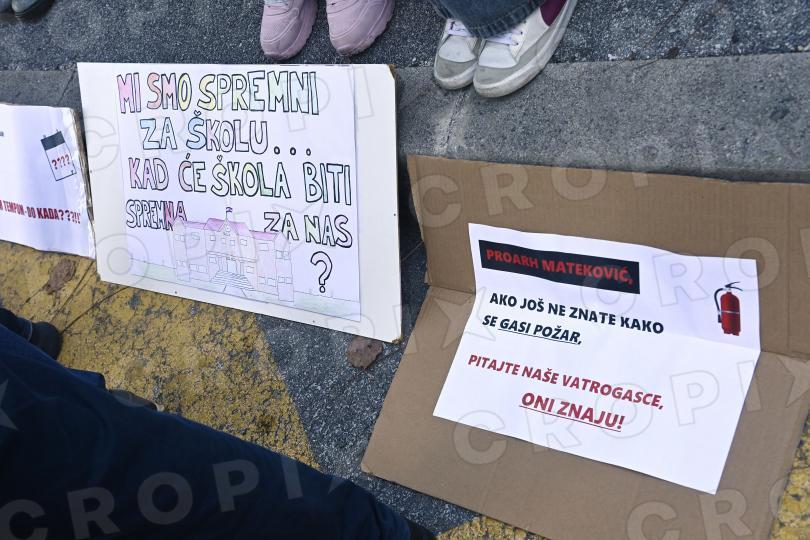 ????
TEMPOM-DO KADA???!!
MI SMO SPREMNI
ZA ŠKOLU...
KAD ĆE ŠKOLA BITI
SPREMNA ZA NAS
?
PROARH MATEKOVIĆ,
AKO JOŠ NE ZNATE KAKO
SE GASI POŽAR,
PITAJTE NAŠE VATROGASCE,
ONI ZNAJU!
CROPIX